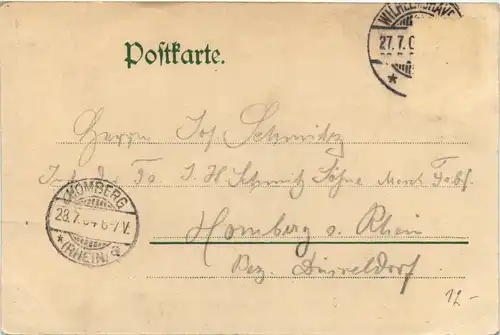 WILHELMSHAV
27.7.0
Postkarte.
Herrn Jos Schmitz
Inh. der Fa. J. H. Schmitz Söhne Fabf.
HOMBERG
28.7.04 6-7V.
* (RHEIN) a
Homberg a. Rhein
Bez. Düsseldorf
12-